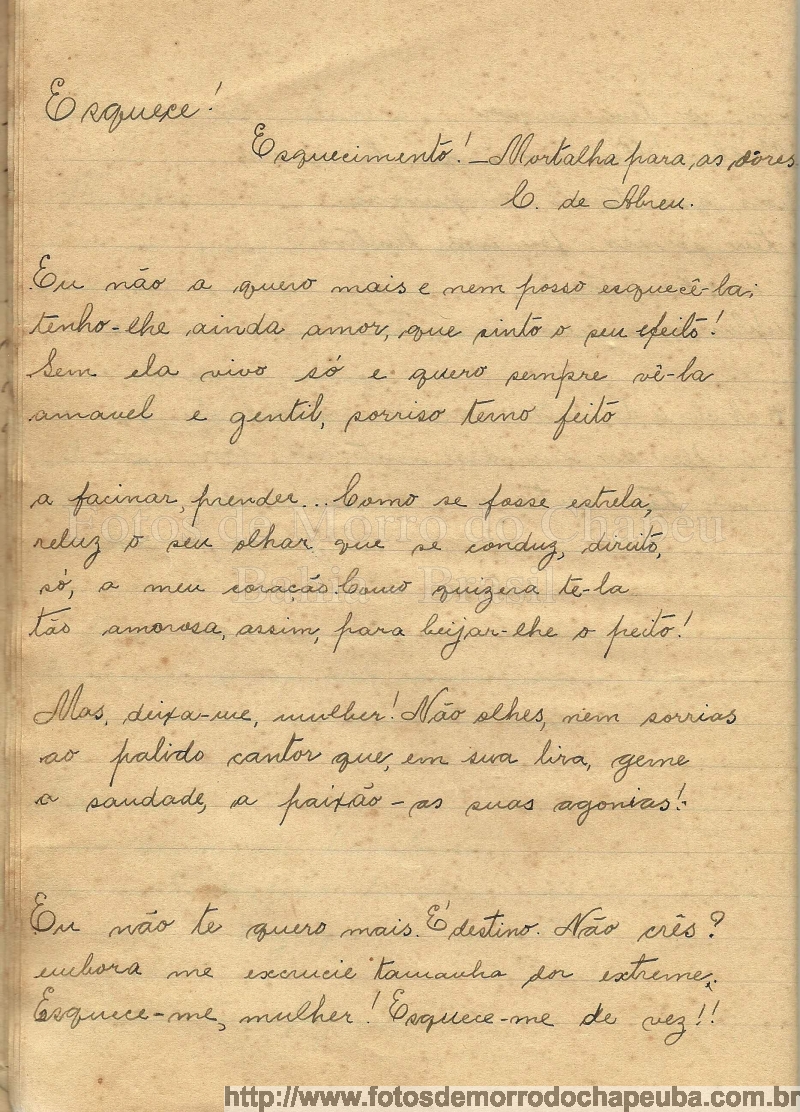 Esquece!
Esquecimento! - Mortalha para, as dôres
C. de Abreu.
Eu não a quero mais e nem posso esquecê-la;
tenho-lhe ainda amor, que sinto o seu efeito!
Sem ela vivo só e quero sempre vê-la
amavel e gentil, sorriso terno feito
a facinar, prender... Como se fosse estrela,
reluz o seu olhar que se conduz, direito,
só, a meu coração. Como quizera te-la
tão amorosa, assim, para beijar-lhe o peito!
Mas, deixa-me, mulher! Não olhes, nem sorrias
ao palido cantor que, em sua lira, geme
a saudade, a paixão - as suas agonias!
Eu não te quero mais. É destino. Não crês?
embora me excrucie tamanha dor extreme,
Esquece-me, mulher! Esquece-me de vez!!
Fotos de Morro do Chapéu
Bahia - Brasil
http://www.fotosdemorrodochapeuba.com.br